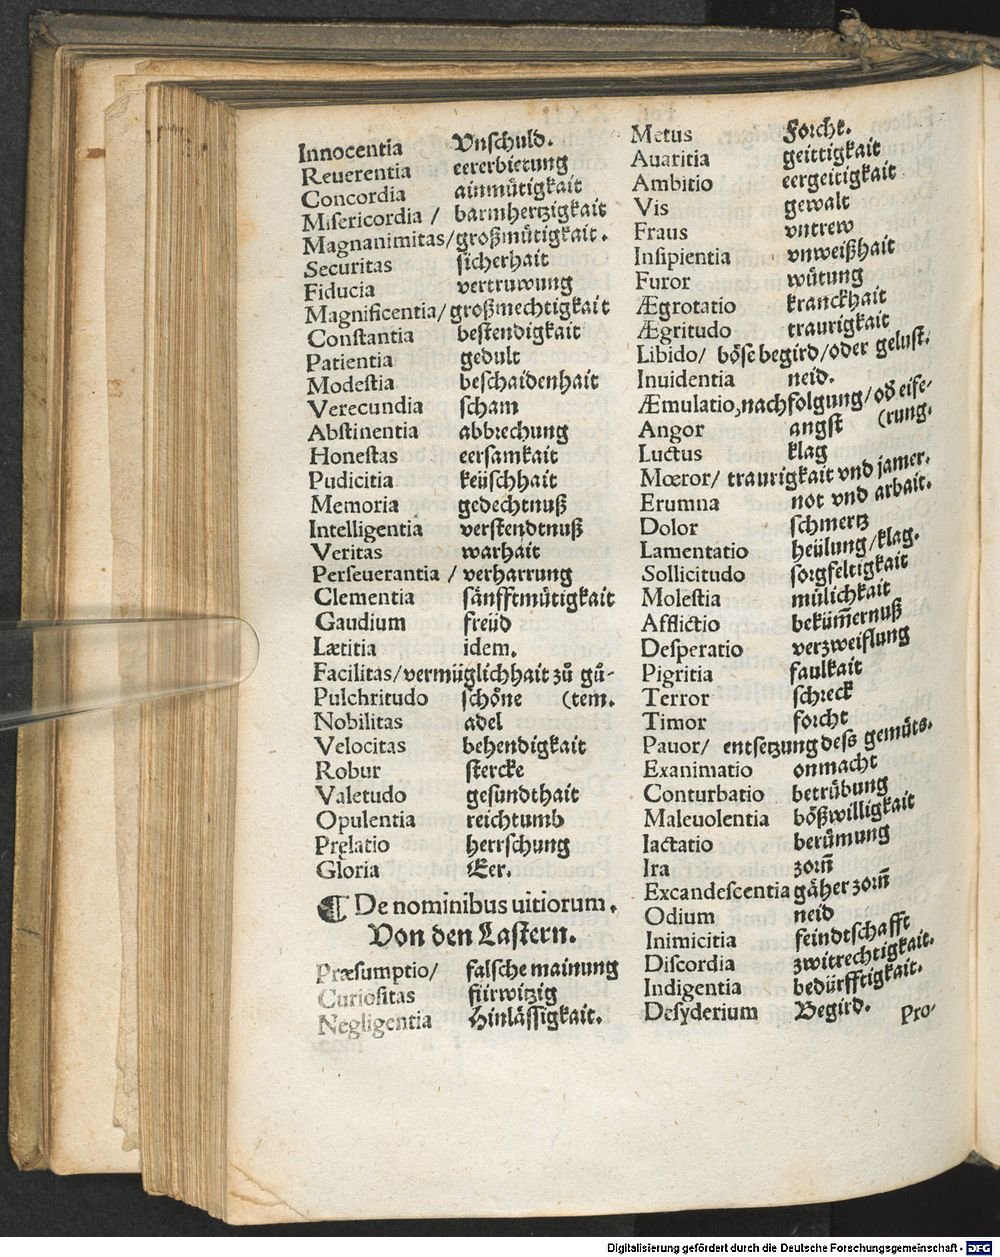 Innocentia Vnschuld.
Reuerentia eererbietung
Concordia ainmütigkait
Miſericordia / barmhertzigkait
Magnanimitas/großmütigkait.
Securitas ſicherhait
Fiducia vertruwung
Magnificentia/großmechtigkait
Conſtantia beſtendigkait
Patientia gedult
Modeſtia beſchaidenhait
Verecundia ſcham
Abſtinentia abbrechung
Honeſtas eerſamkait
Pudicitia keüſchhait
Memoria gedechtnuß
Intelligentia verſtendtnuß
Veritas warhait
Perſeuerantia / verharrung
Clementia ſänfftmütigkait
Gaudium freüd
Lætitia idem.
Facilitas/vermüglichhait zů gů-
Pulchritudo ſchöne (tem.
Nobilitas adel
Velocitas behendigkait
Robur ſtercke
Valetudo geſundthait
Opulentia reichtumb
Pręlatio herrſchung
Gloria Eer.
¶ De nominibus uitiorum.
Von den Laſtern.
Præſumptio/ falſche mainung
Curioſitas fürwitzig
Negligentia Hinläſſigkait.
Metus Forcht.
Auaritia geittigkait
Ambitio eergeitigkait
Vis gewalt
Fraus vntrew
Inſipientia vnweißhait
Furor wütung
Ægrotatio kranckhait
Ægritudo traurigkait
Libido/ böſe begird/oder geluſt.
Inuidentia neid.
Æmulatio, nachfolgung/od̕ eife-
Angor angſt (rung.
Luctus klag
Mœror/ traurigkait vnd jamer.
Erumna not vnd arbait.
Dolor ſchmertz
Lamentatio heülung/klag.
Sollicitudo ſorgfeltigkait
Moleſtia mülichkait
Afflictio beküm̄ernuß
Deſperatio verzweiflung
Pigritia faulkait
Terror ſchreck
Timor forcht
Pauor/ entſetzung deſs gemüts.
Exanimatio onmacht
Conturbatio betrübung
Maleuolentia bößwilligkait
Iactatio berümung
Ira zorn̄
Excandeſcentia gäher zorn̄
Odium neid
Inimicitia feindtſchafft
Diſcordia zwitrechtigkait.
Indigentia bedürfftigkait.
Deſyderium Begird.
Pro-
Digitalisierung gefördert durch die Deutsche Forschungsgemeinschaft - DFG